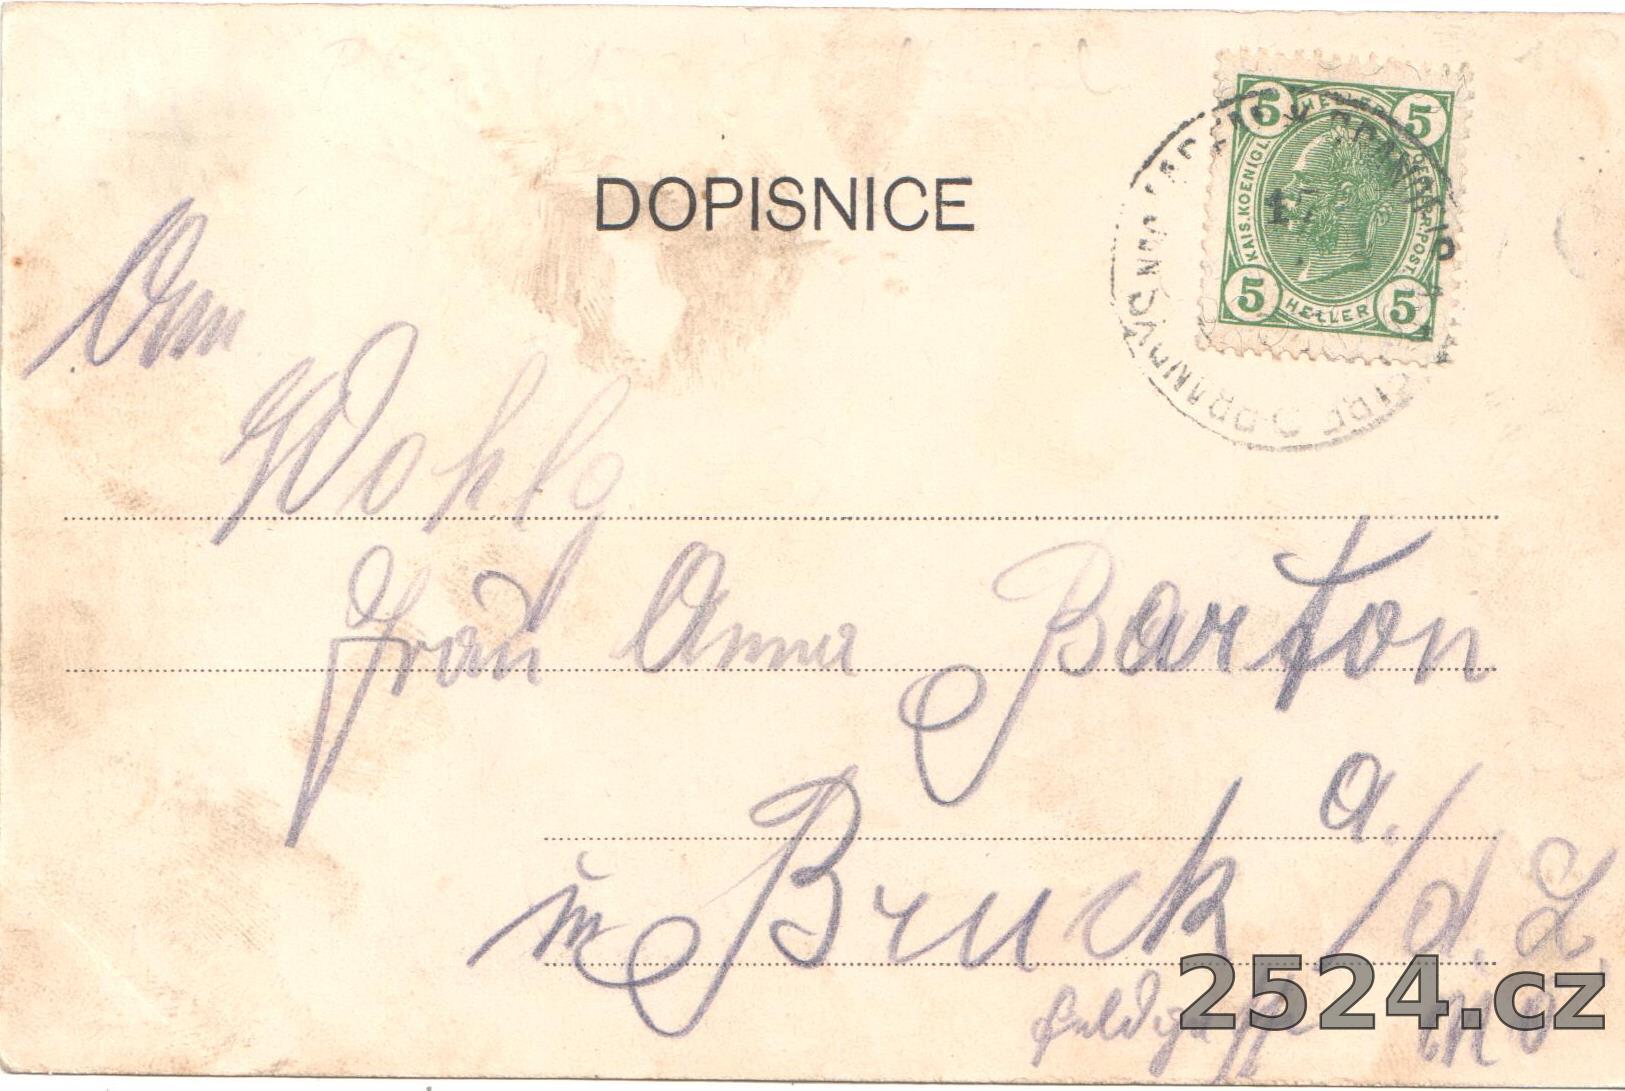 DOPISNICE
5 HELLER 5
KAIS. KOENIGL. OESTERR. POST.
5 HELLER 5
An
Wohlg
Frau Anna Barton
in Bruck a./d. L.
N.Ö
2524.cz